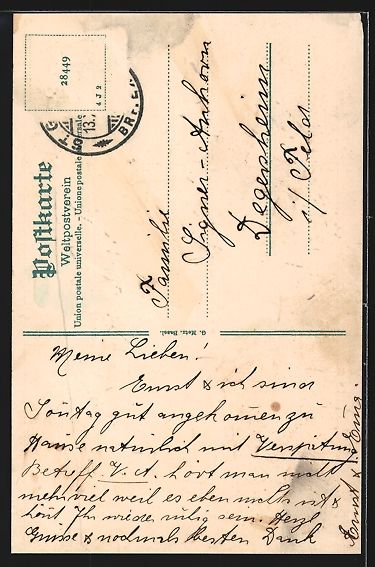 28449
13.
BR
Postkarte
Weltpostverein
Union postale universelle. - Unione postale universale
Familie
Signer-Anhorn
Degersheim
i/ Feld
G. Metz, Basel.
Meine Lieben!
Ernst & ich sind
Sontag gut angekomen zu
Hause natürlich mit Verspätung
Betreff V. A. hört man nicht
mehr viel weil es eben nichts ist &
könt Ihr wieder ruhig sein. Herzl
Grüsse & nochmals besten Dank
Ernst &